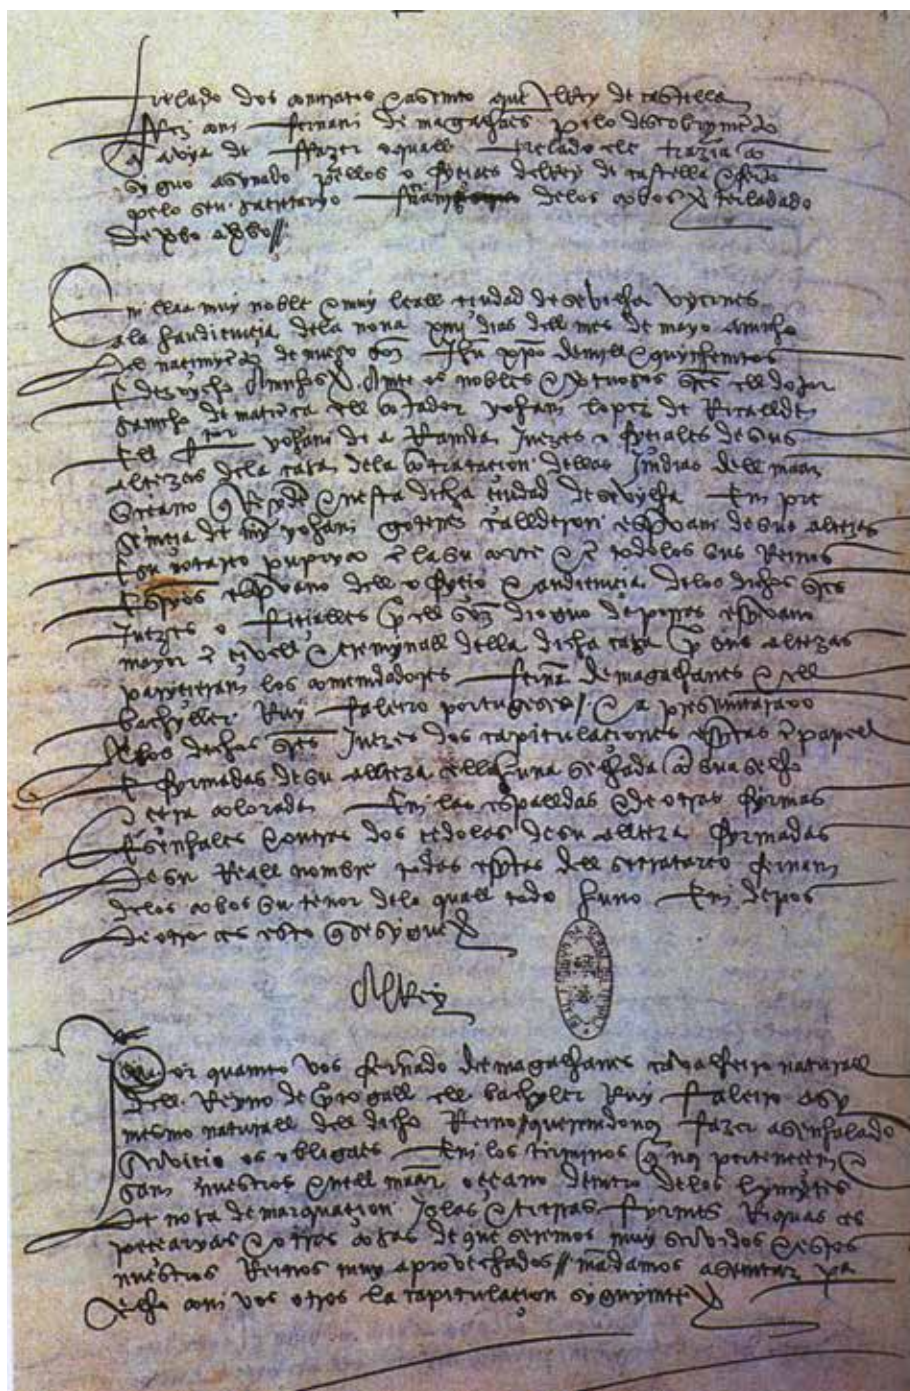 trelado dos contratos & asento que ell Rey de castella
fez com fernam de magalhães pelo descobrymento
q avya de ffazer o quall trelado ele trazia co
sygno asynado pellos ofyciaes delRey de castella & feito
pelo seu secretaryo delos cobos & terladado
de vbo a vbo //
En llaa muy noble & muy leall ciudad de sevilha vyernes
a la haudiencia de la nona dias dell mes de mayo anno
del nacimyẽto de nueso Jhũ xpõ de mill & quynhentos
& dezyocho annos ante os nobles & vertuosos sres ell dotor
sancho de matiença ell contador yohan lopez de Ricallde
& ell ffator yohan de aRanda Juezes oficiales de sus
altezas de la casa de la contratacion dellas Jndias dell maar
oceano q Resyde en esta dicha ciudad de sevylha en pre
sencia de my yohan goteres callderon espvano de sus altezas
& su notario pupryco ẽ la su corte & ẽ todolos sus Reinos
espvano dell oficio & audiencia de los dichos sres
Juezes oficialles por ell dioguo de porras espvano
mayor ẽ cyvell & crymynall de lla dicha casa por sus altezas
parycieram los comendadores fernã de magalhanes & ell
bachyller Ruy faleiro portugeses / & presentaram
a los dichos sres Juezes dos capitulaciones esptas ẽ papel
& fyrmadas de su allteza ella huna selhada cõ sua selho
de cera colorada en las espalldas & de otras fyrmas
& senhales & outras dos cedolas de su allteza fyrmadas
de su Reall nombre todas esptas dell secretareo fernan
de los cobos su tenor de lo quall todo huno en depos
de otro es esto q se sygue
El Rey
Por quamto vos fernãdo de magalhanes cavalheiro naturall
dell Reyno de purtogall ell bachyler Ruy faleiro asy
mesmo naturall dell dicho Reino / queriendonos fazer asenhalado
servicio os obligaes en los terminos q nos pertenecem &
sam nuestros en ell maar oceano dentro de los lymytes
de nosa demarquacion Jslas & tierras fyrmes Riquas es
pecearyas & otras cosas de que seremos muy servidos & estos
nuestros Reinos muy aprovechados // mãdamos asentar pa
elho con vos otros la capitulacion syguyente